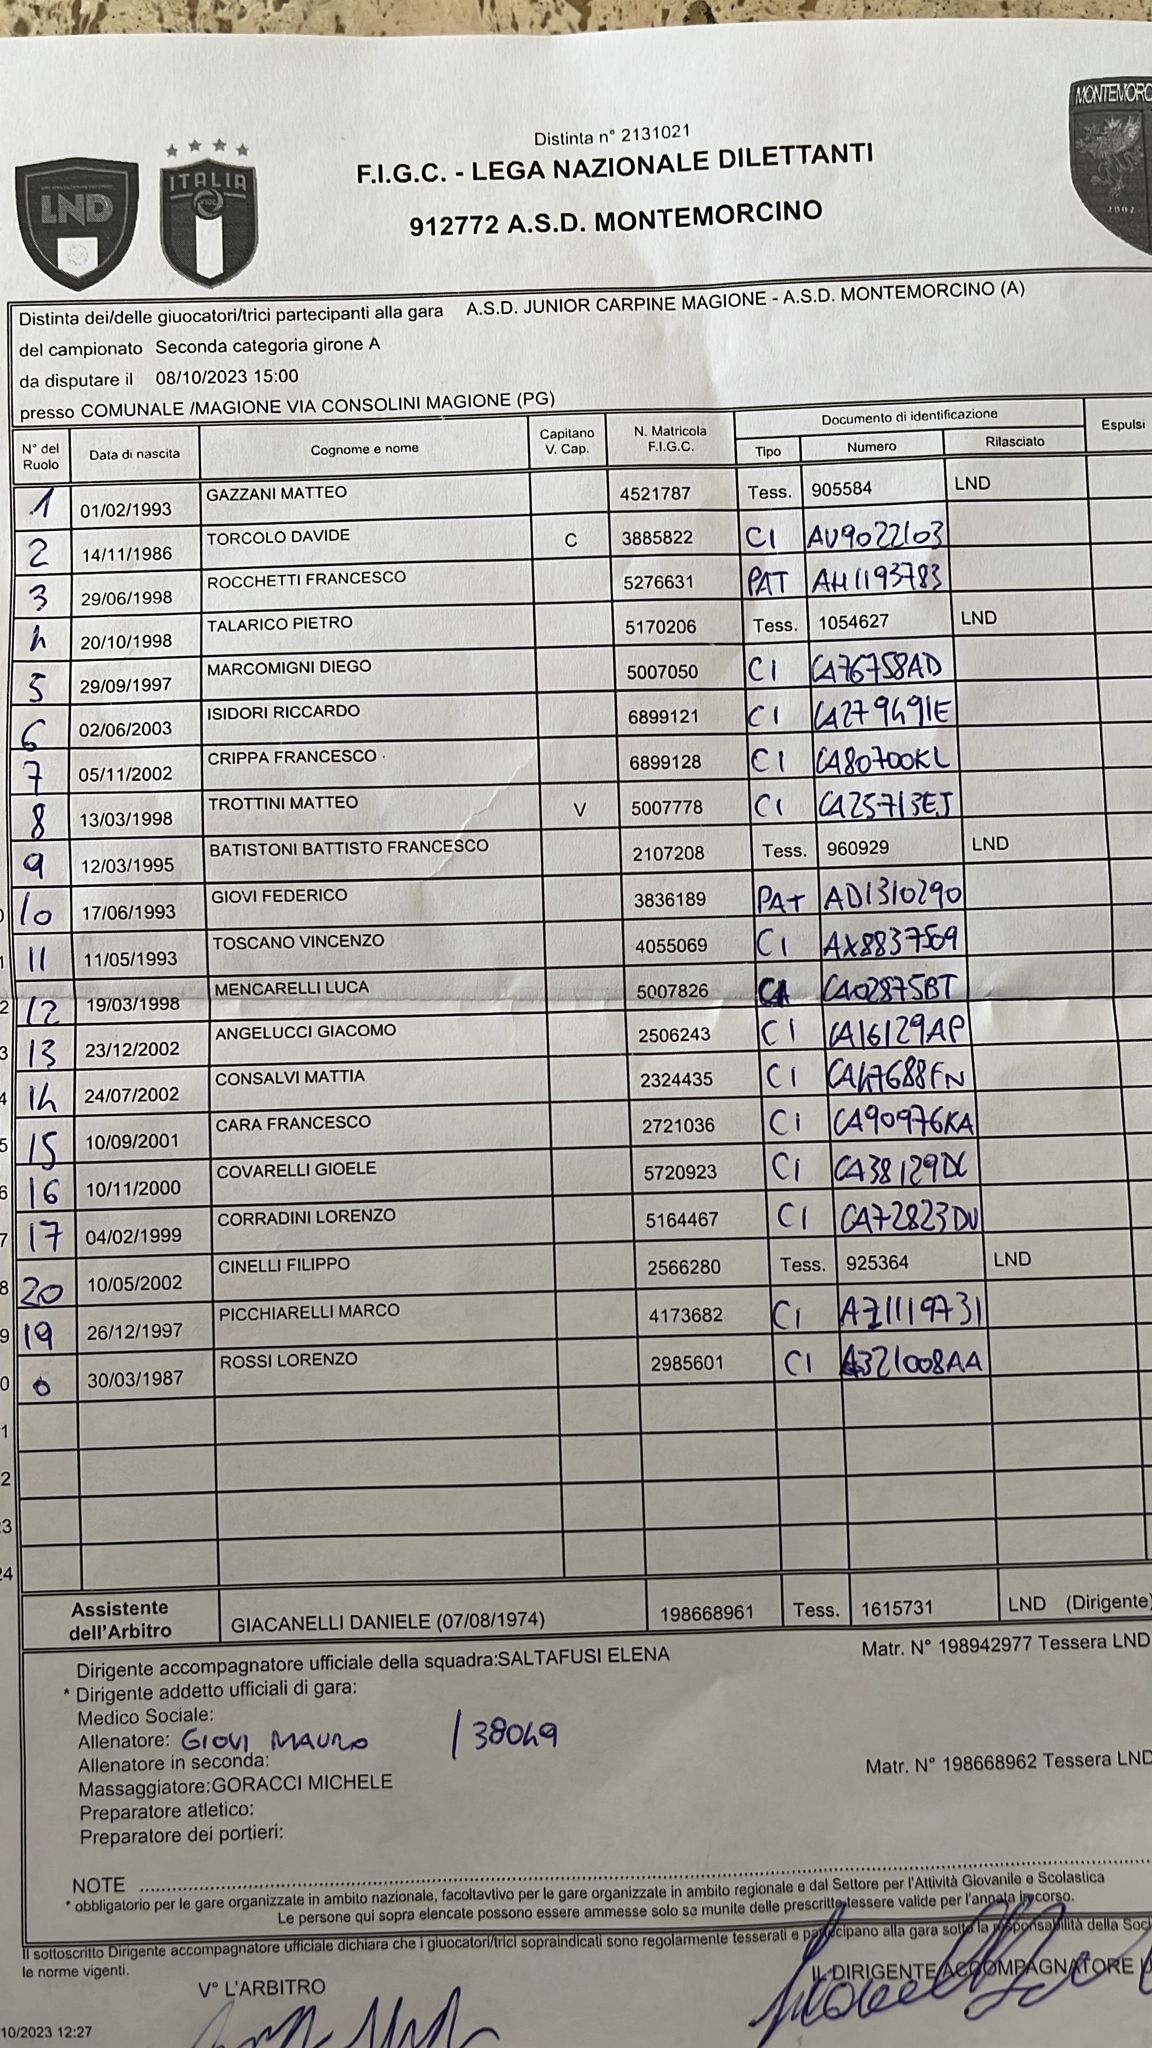 Distinta n° 2131021
F.I.G.C. - LEGA NAZIONALE DILETTANTI
912772 A.S.D. MONTEMORCINO
LND
ITALIA
MONTEMORC
2002
Distinta dei/delle giuocatori/trici partecipanti alla gara A.S.D. JUNIOR CARPINE MAGIONE - A.S.D. MONTEMORCINO (A)
del campionato Seconda categoria girone A
da disputare il 08/10/2023 15:00
presso COMUNALE /MAGIONE VIA CONSOLINI MAGIONE (PG)
N° del Ruolo Data di nascita Cognome e nome Capitano V. Cap. N. Matricola F.I.G.C. Documento di identificazione Tipo Numero Rilasciato Espulsi
1 01/02/1993 GAZZANI MATTEO 4521787 Tess. 905584 LND
2 14/11/1986 TORCOLO DAVIDE C 3885822 CI AU9022103
3 29/06/1998 ROCCHETTI FRANCESCO 5276631 PAT AH1193783
4 20/10/1998 TALARICO PIETRO 5170206 Tess. 1054627 LND
5 29/09/1997 MARCOMIGNI DIEGO 5007050 CI CA76758AD
6 02/06/2003 ISIDORI RICCARDO 6899121 CI CA27949IE
7 05/11/2002 CRIPPA FRANCESCO 6899128 CI CA80700KL
8 13/03/1998 TROTTINI MATTEO V 5007778 CI CA25713EJ
9 12/03/1995 BATISTONI BATTISTO FRANCESCO 2107208 Tess. 960929 LND
10 17/06/1993 GIOVI FEDERICO 3836189 PAT AD1310290
11 11/05/1993 TOSCANO VINCENZO 4055069 CI AX8837509
12 19/03/1998 MENCARELLI LUCA 5007826 CA02875BT
13 23/12/2002 ANGELUCCI GIACOMO 2506243 CI CA16129AP
14 24/07/2002 CONSALVI MATTIA 2324435 CI CA47688FN
15 10/09/2001 CARA FRANCESCO 2721036 CI CA90976KA
16 10/11/2000 COVARELLI GIOELE 5720923 CI CA38129DC
17 04/02/1999 CORRADINI LORENZO 5164467 CI CA72823DU
20 10/05/2002 CINELLI FILIPPO 2566280 Tess. 925364 LND
19 26/12/1997 PICCHIARELLI MARCO 4173682 CI
0 30/03/1987 ROSSI LORENZO 2985601 CI
Assistente dell'Arbitro GIACANELLI DANIELE (07/08/1974) 198668961 Tess. 1615731 LND (Dirigente)
Dirigente accompagnatore ufficiale della squadra:SALTAFUSI ELENA Matr. N° 198942977 Tessera LND
* Dirigente addetto ufficiali di gara:
Medico Sociale:
Allenatore: GIOVI MAURO /38049
Allenatore in seconda:
Massaggiatore:GORACCI MICHELE Matr. N° 198668962 Tessera LND
Preparatore atletico:
Preparatore dei portieri:
NOTE
* obbligatorio per le gare organizzate in ambito nazionale, facoltavtivo per le gare organizzate in ambito regionale e dal Settore per l'Attività Giovanile e Scolastica
Le persone qui sopra elencate possono essere ammesse solo se munite delle prescritte tessere valide per l'annata in corso.
Il sottoscritto Dirigente accompagnatore ufficiale dichiara che i giuocatori/trici sopraindicati sono regolarmente tesserati e partecipano alla gara sotto la responsabilità della Soci
le norme vigenti.
V° L'ARBITRO IL DIRIGENTE ACCOMPAGNATORE U
10/2023 12:27